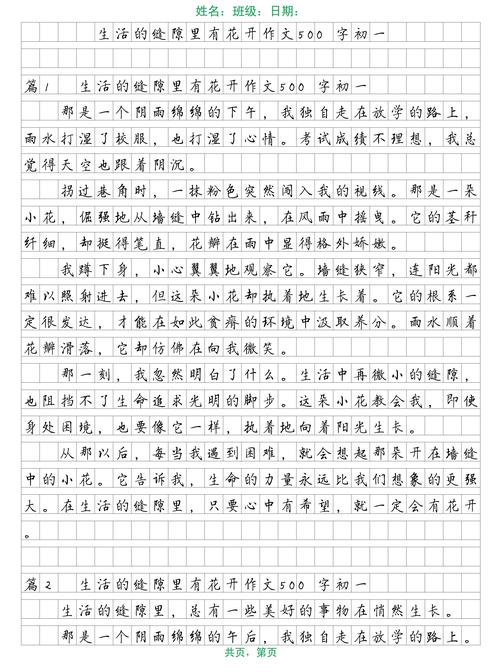 姓名：班级：日期：
生活的缝隙里有花开作文500 字初一
篇1 生活的缝隙里有花开作文500 字初一
那是一个阴雨绵绵的下午，我独自走在放学的路上，
雨水打湿了校服，也打湿了心情。考试成绩不理想，我总
觉得天空也跟着阴沉。
拐过巷角时，一抹粉色突然闯入我的视线。那是一朵
小花，倔强地从墙缝中钻出来，在风雨中摇曳。它的茎秆
纤细，却挺得笔直，花瓣在雨中显得格外娇嫩。
我蹲下身，小心翼翼地观察它。墙缝狭窄，连阳光都
难以照射进去，但这朵小花却执着地生长着。它的根系一
定很发达，才能在如此贫瘠的环境中汲取养分。雨水顺着
花瓣滑落，它却仿佛在向我微笑。
那一刻，我忽然明白了什么。生活中再微小的缝隙，
也阻挡不了生命追求光明的脚步。这朵小花教会我，即使
身处困境，也要像它一样，执着地向着阳光生长。
从那以后，每当我遇到困难，就会想起那朵开在墙缝
中的小花。它告诉我，生命的力量永远比我们想象的更强
大。在生活的缝隙里，只要心中有希望，就一定会有花开
。
篇2 生活的缝隙里有花开作文500 字初一
生活的缝隙里，总有一些美好的事物在悄然生长。
那是一个阴雨绵绵的午后，我独自走在放学的路上。
共页，第页